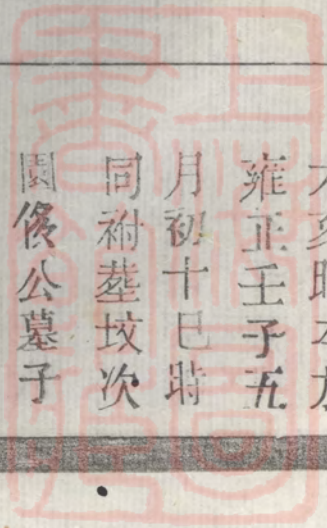 亥時
雍正壬子五
月初十巳時
同祔塟坟次
園俟公墓子